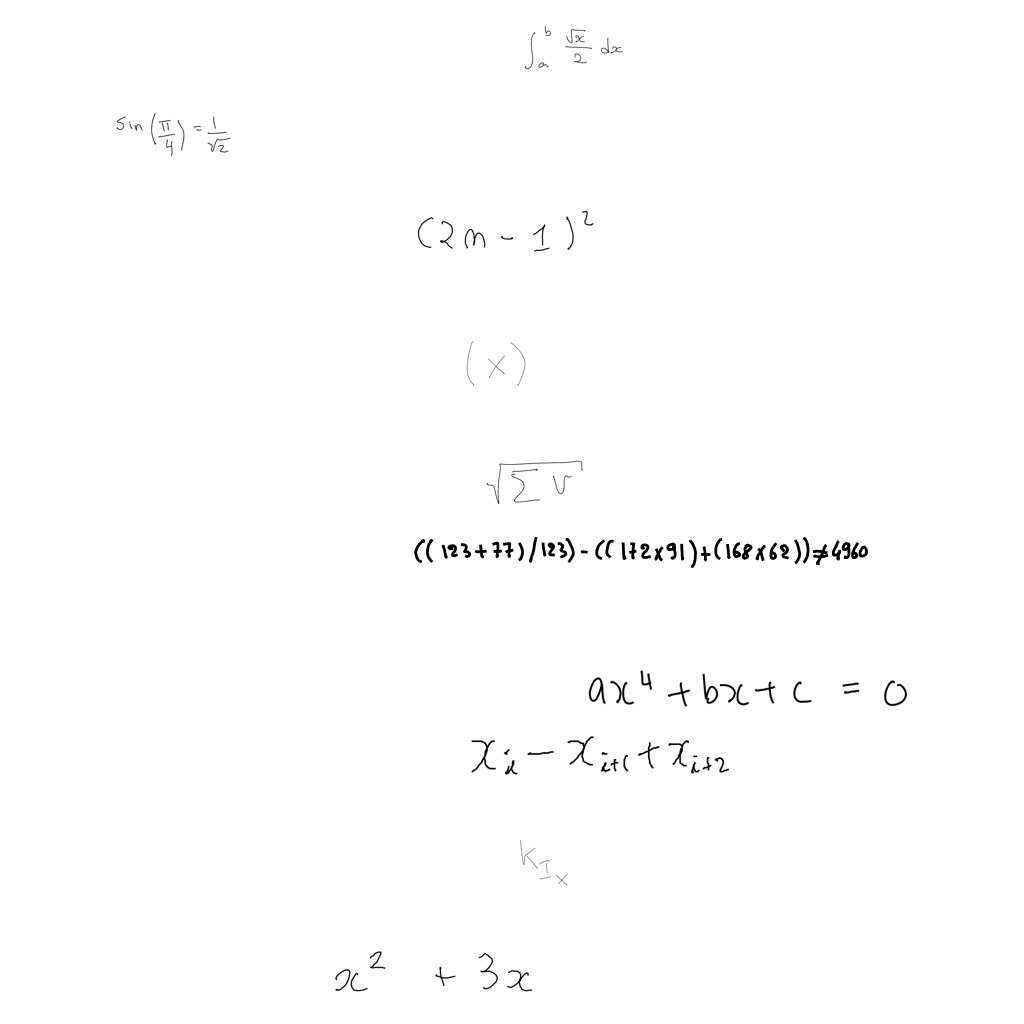 ∫_a^b √x/2 dx
sin(π/4) = 1/√2
(2n - 1)²
(x)
√(∑ v)
((123+77)/123)-((172×91)+(168×62))≠4960
ax⁴ + bx + c = 0
x_i - x_{i+1} + x_{i+2}
k_{I_x}
x² + 3x